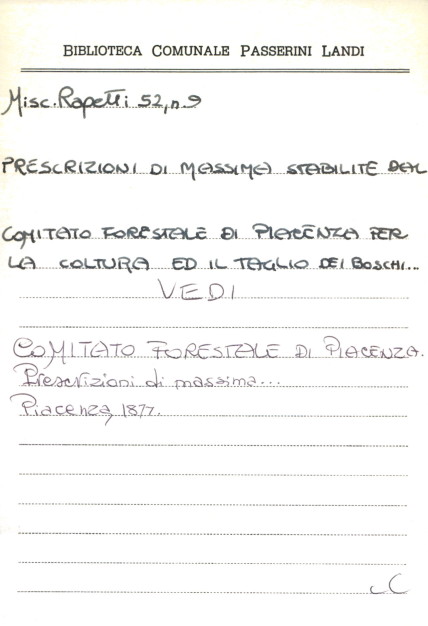 BIBLIOTECA COMUNALE PASSERINI LANDI
Misc. Rapetti 52, n. 9
PRESCRIZIONI DI MASSIMA STABILITE DAL
COMITATO FORESTALE DI PIACENZA PER
LA COLTURA ED IL TAGLIO DEI BOSCHI...
VEDI
COMITATO FORESTALE DI PIACENZA.
Prescrizioni di massima...
Piacenza, 1877.